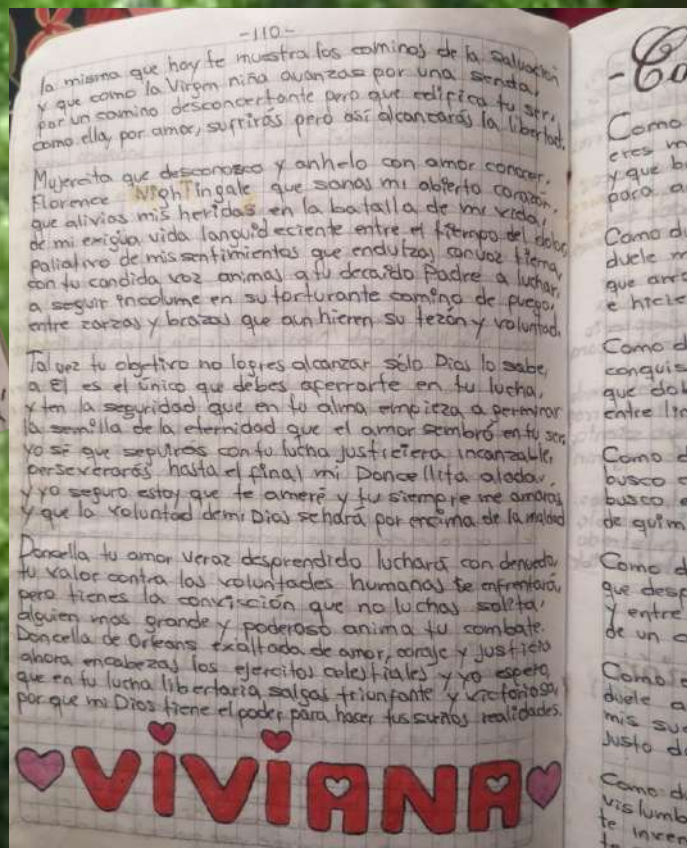 -110-
la misma que hoy te muestra los caminos de la salvación
y que como la Virgen niña avanzas por una senda,
por un camino desconcertante pero que edifica tu ser,
como ella, por amor, sufrirás pero así alcanzarás la libertad.
Mujercita que desconozco y anhelo con amor conocer,
Florence NighTingale que sanas mi abierto corazón,
que alivias mis heridas en la batalla de mi vida,
de mi exigua vida languideciente entre el tiempo del dolor,
paliativo de mis sentimientos que endulzas con voz tierna,
con tu candida voz animas a tu decaído Padre a luchar,
a seguir incolume en su torturante camino de fuego,
entre zarzas y brazas que aun hieren su tezón y voluntad.
Tal vez tu objetivo no logres alcanzar sólo Dios lo sabe,
a el es el único que debes aferrarte en tu lucha,
y ten la seguridad que en tu alma empieza a germinar
la semilla de la eternidad que el amor sembró en tu ser,
yo sé que seguirás con tu lucha justiciera incanzable,
perseverarás hasta el final mi Doncellita alada,
y yo seguro estoy que te ameré y tu siempre me amarás
y que la voluntad de mi Dios se hará por encima de la maldad
Doncella tu amor veraz desprendido luchará con denuedo,
tu valor contra las voluntades humanas se enfrentará,
pero tienes la convicción que no luchas solita,
alguien mas grande y poderoso anima tu combate.
Doncella de Orleans exaltada de amor, coraje y justicia
ahora encabezas los ejercitos celestiales y yo espero,
que en tu lucha libertaria salgas triunfante y victoriosa,
por que mi Dios tiene el poder para hacer tus sueños realidades.
VIVIANA
Como
eres m
y que b
para a
Como d
duele m
que arr
e hicie
Como d
conquis
que dob
entre lin
Como d
busco
busco
de quim
Como d
que desp
y entre
de un
Como
duele a
mis su
Justo d
Como d
vislumb
te inven